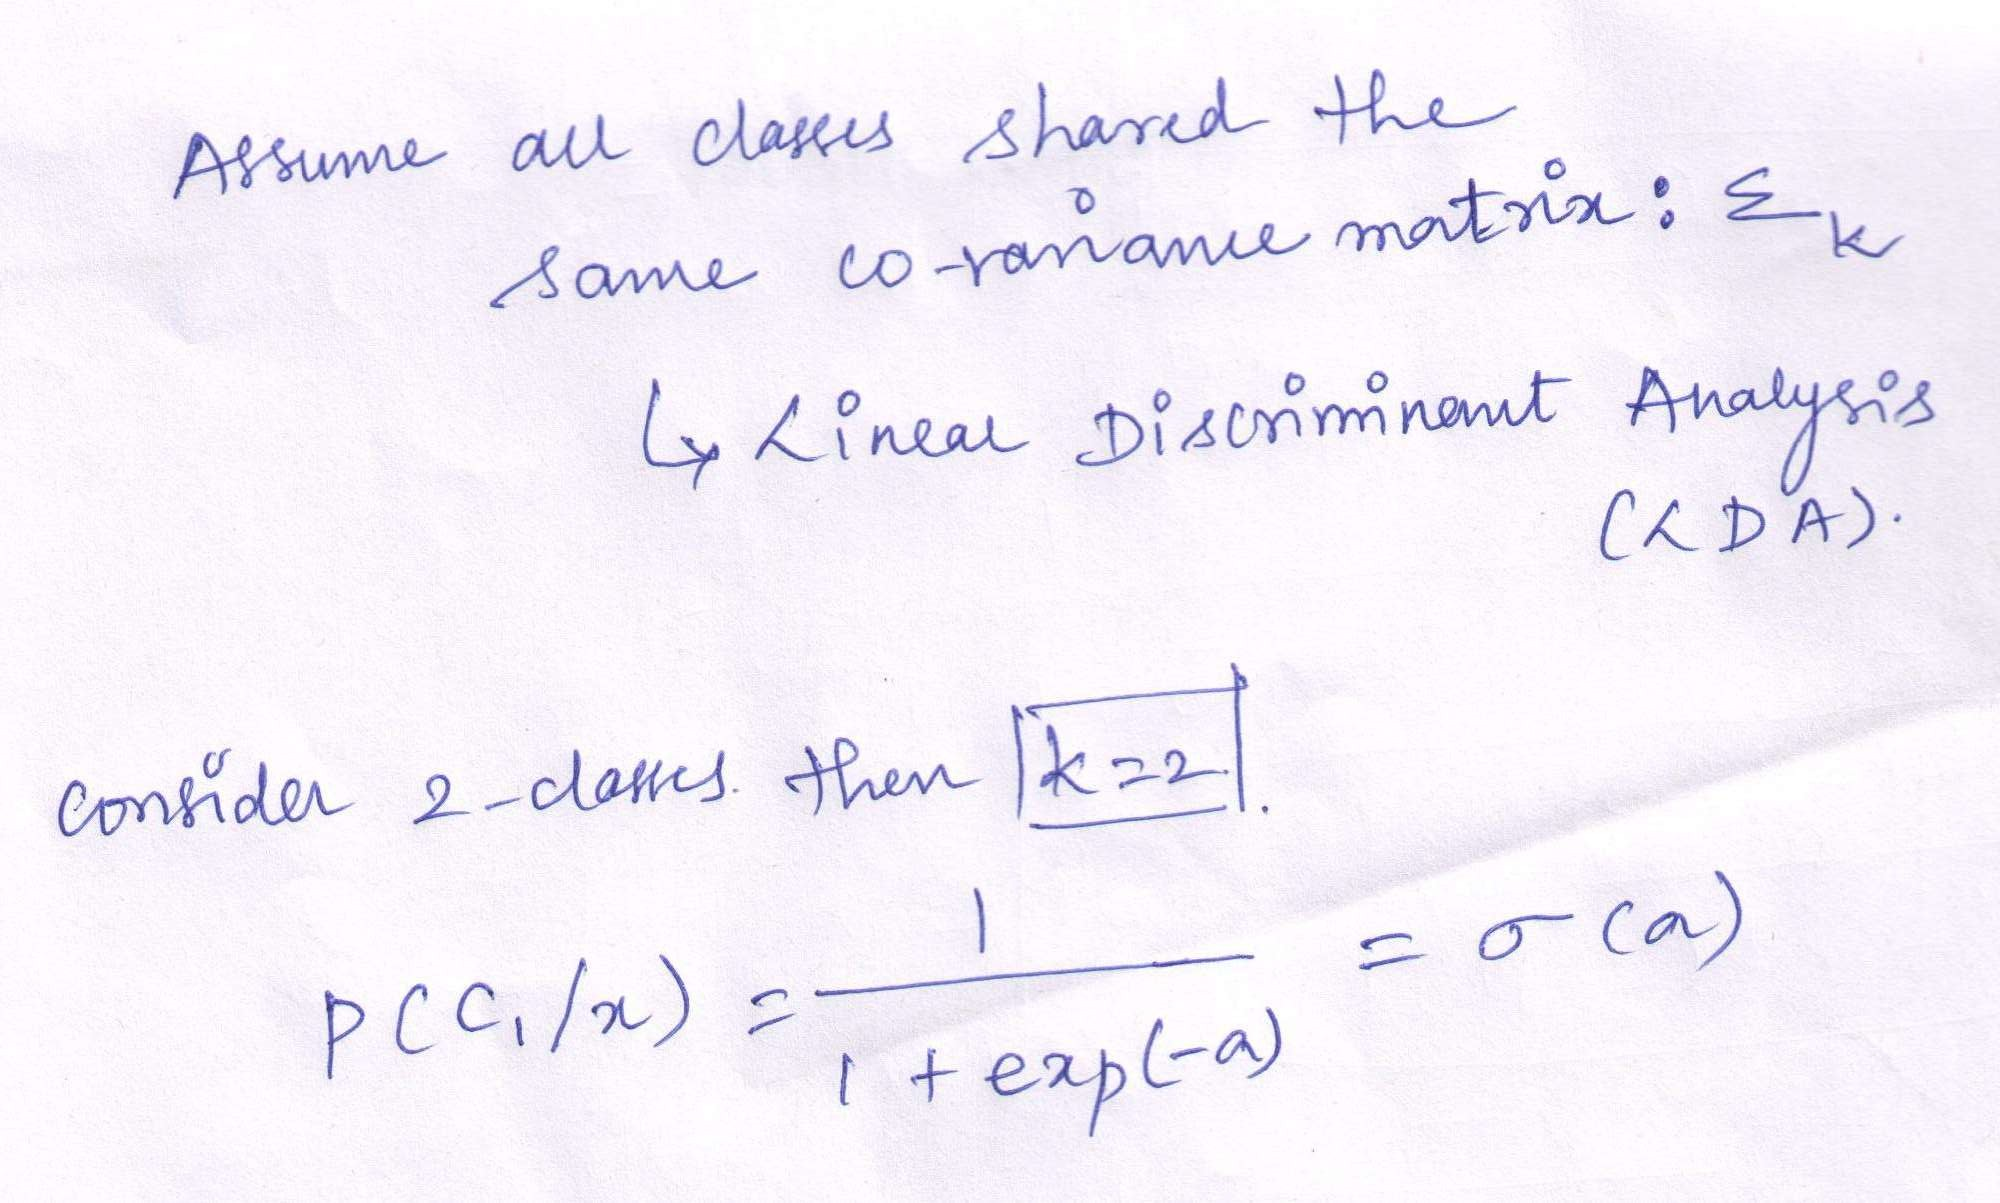 Assume all classes shared the
same co-variance matrix: Σ_k
↳ Linear Discriminant Analysis
(LDA).
consider 2-classes. then k=2.
P(C₁/x) = 1 / (1 + exp(-a)) = σ(a)